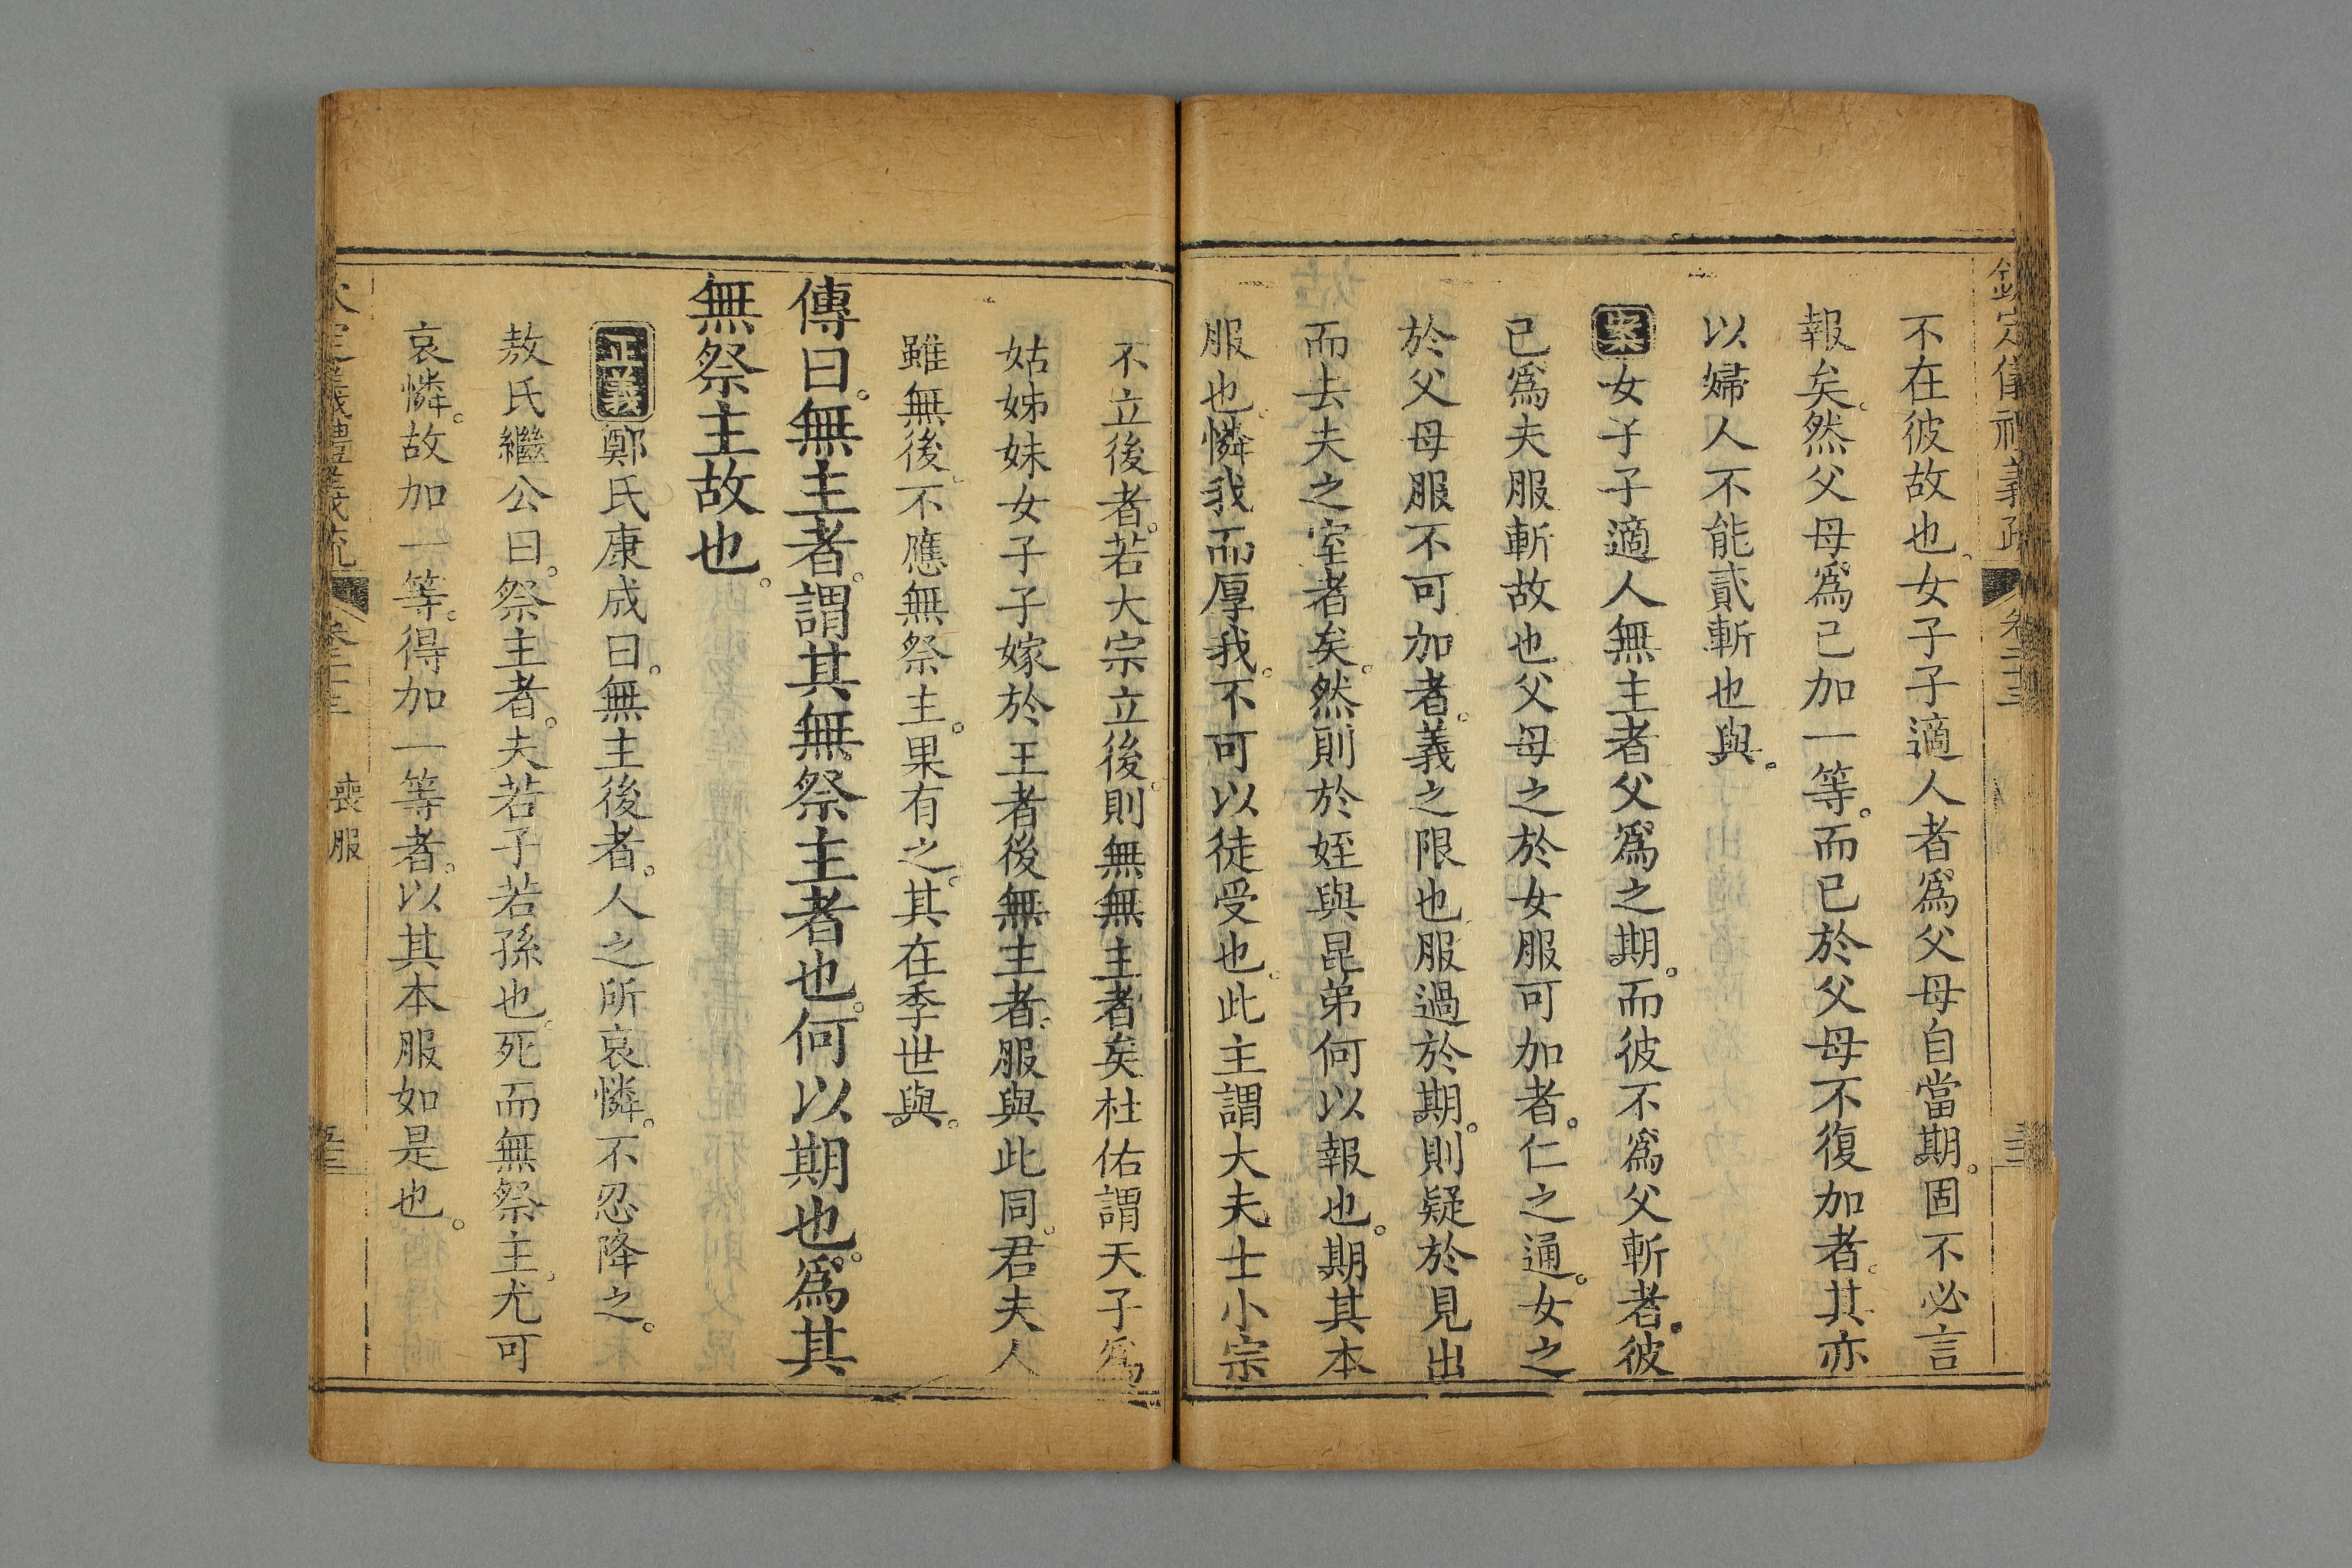 欽定儀禮義疏 卷二十三
不在彼故也。女子子適人者爲父母自當期。固不必言
報矣。然父母爲己加一等。而已於父母不復加者。其亦
以婦人不能貳斬也與。
案女子子適人無主者父爲之期。而彼不爲父斬者。彼
已爲夫服斬故也。父母之於女服可加者。仁之通。女之
於父母服不可加者。義之限也。服過於期。則疑於見出
而去夫之室者矣。然則於姪與昆弟何以報也。期其本
服也。憐我而厚我。不可以徒受也。此主謂大夫士小宗
不立後者。若大宗立後。則無無主者矣杜佑謂天子爲
姑姊妹女子子嫁於王者後無主者。服與此同。君夫人
雖無後。不應無祭主。果有之。其在季世與。
傳曰。無主者。謂其無祭主者也。何以期也。爲其
無祭主故也。
正義鄭氏康成曰。無主後者。人之所哀憐。不忍降之。
敖氏繼公曰。祭主者。夫若子若孫也。死而無祭主。尤可
哀憐。故加一等。得加一等者。以其本服如是也。
欽定儀禮義疏 卷二十三 喪服